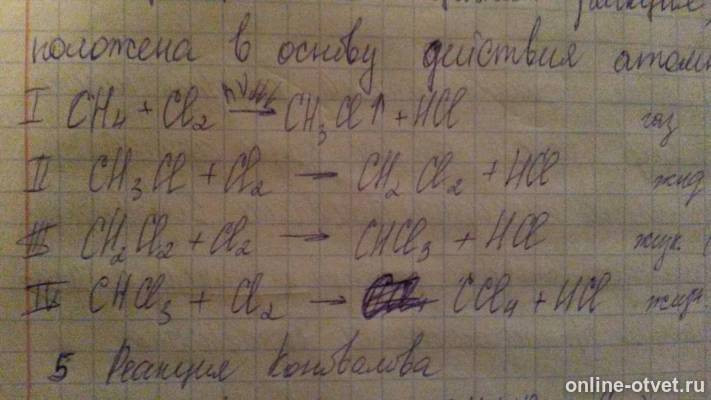 положена в основу действия атомн
I CH4 + Cl2 hν → CH3Cl↑ + HCl газ
II CH3Cl + Cl2 → CH2Cl2 + HCl жид
III CH2Cl2 + Cl2 → CHCl3 + HCl жидк
IV CHCl3 + Cl2 → CCl4 + HCl жидк
5 Реакция Коновалова
online-otvet.ru